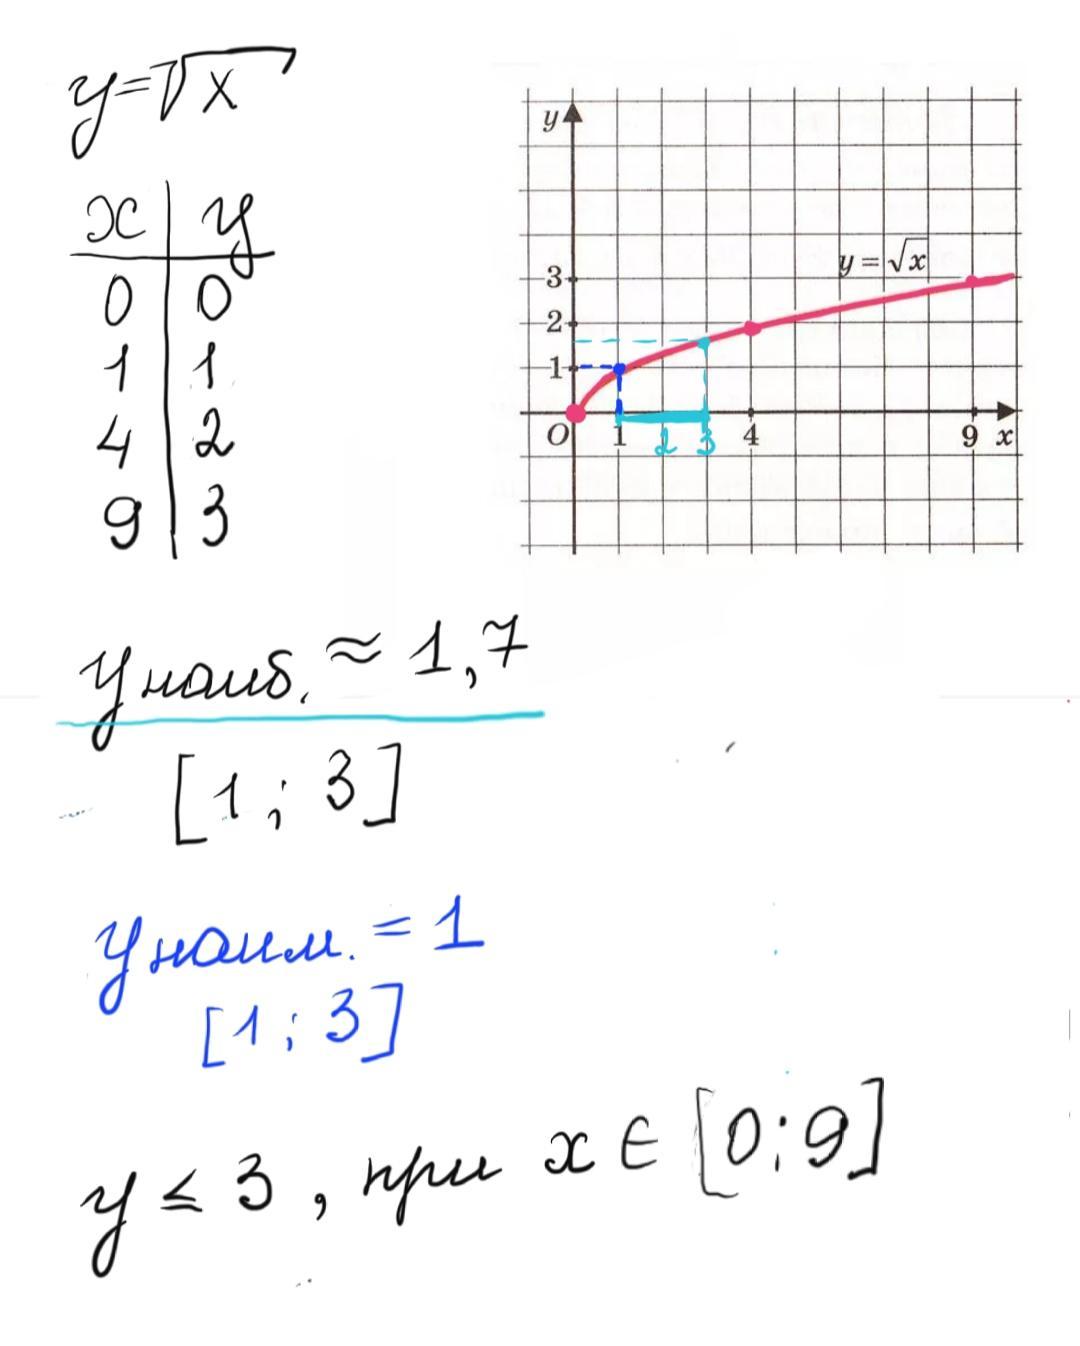 y=√x
x y
0 0
1 1
4 2
9 3
y
y = √x
3
2
1
O 1 2 3 4 9 x
y наиб. ≈ 1,7
[1; 3]
y наим. = 1
[1; 3]
y ≤ 3, при x ∈ [0; 9]